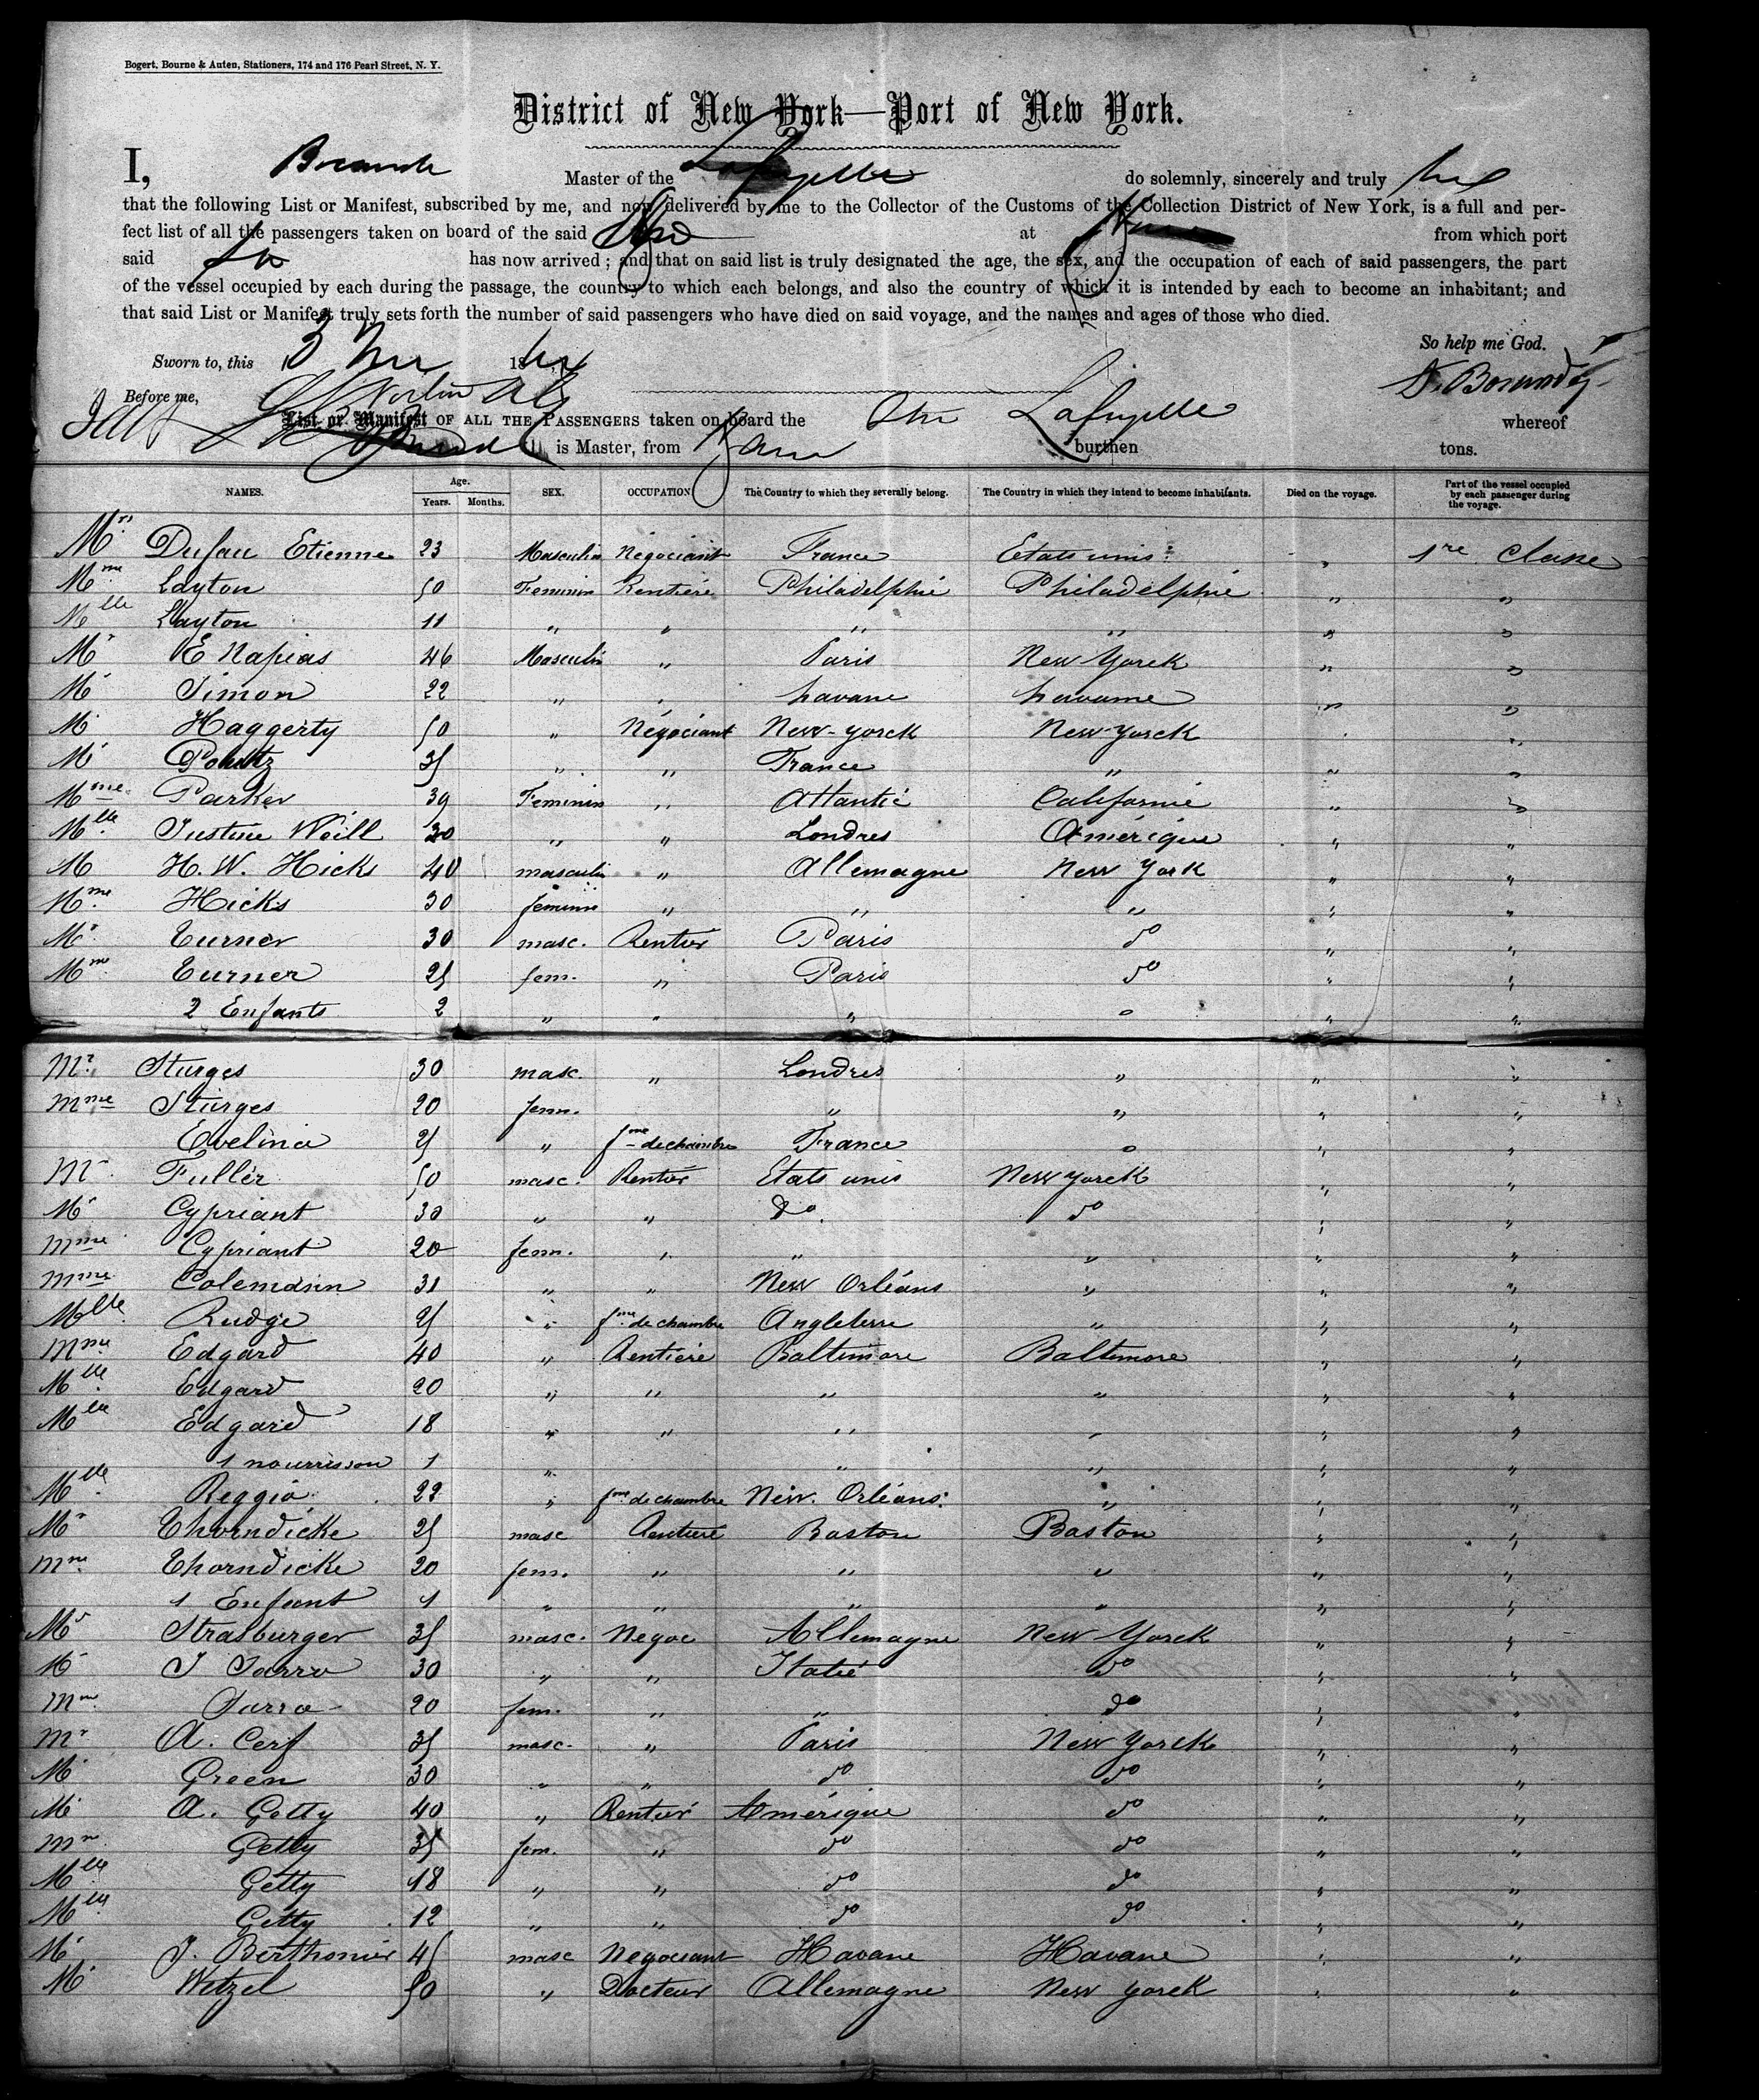 Bogert, Bourne & Auten, Stationers, 174 and 176 Pearl Street, N. Y.
District of New York—Port of New York.
I, Master of the Lafayette do solemnly, sincerely and truly
that the following List or Manifest, subscribed by me, and now delivered by me to the Collector of the Customs of the Collection District of New York, is a full and per-
fect list of all the passengers taken on board of the said Ship at from which port
said has now arrived; and that on said list is truly designated the age, the sex, and the occupation of each of said passengers, the part
of the vessel occupied by each during the passage, the country to which each belongs, and also the country of which it is intended by each to become an inhabitant; and
that said List or Manifest truly sets forth the number of said passengers who have died on said voyage, and the names and ages of those who died.
So help me God.
Sworn to, this 3 18
Before me,
List or Manifest OF ALL THE PASSENGERS taken on board the Lafayette whereof
is Master, from burthen tons.
NAMES. Age. Years. Months. SEX. OCCUPATION The Country to which they severally belong. The Country in which they intend to become inhabitants. Died on the voyage. Part of the vessel occupied by each passenger during the voyage.
Mr Dufau Etienne 23 Masculin Négociant France Etats unis " 1re Classe
Mme Layton 50 Feminin Rentière Philadelphie Philadelphie " "
Mlle Layton 11 " " " " " "
Mr E Napias 46 Masculin " Paris New Yorck " "
Mr Simon 22 " " havane havanne " "
Mr Haggerty 50 " Négociant New-yorck New-Yorck " "
Mr 35 " " France " " "
Mme Parker 39 Feminin " Atlantic Californie " "
Mlle Justine Weill 30 " " Londres Amérique " "
M H. W. Hicks 40 masculin " Allemagne New York " "
Mme Hicks 30 feminin " " " " "
Mr Turner 30 masc. Rentier Paris do " "
Mme Turner 25 fem. " Paris do " "
2 Enfants 2 " " " " " "
Mr Sturges 30 masc. " Londres " " "
Mme Sturges 20 fem. " " " "
Evelina 25 " fme de chambre France " " "
Mr Fuller 50 masc. Rentier Etats unis New Yorck " "
Mr Cypriant 30 " " do. do " "
Mme Cypriant 20 fem. " " " " "
Mme Colemann 31 " " New Orléans " " "
Mlle Rudge 25 " fme de chambre Angleterre " " "
Mme Edgard 40 " Rentière Baltimore Baltimore " "
Mlle Edgard 20 " " " " " "
Mlle Edgard 18 " " " " " "
1 nourrisson 1 " " " " "
Mlle Reggio 22 " fme de chambre New. Orléans " " "
Mr Thorndicke 25 masc Rentière Boston Boston " "
Mme Thorndicke 20 fem. " " " " "
1 Enfant 1 " " " " " "
Mr Strasburger 35 masc. Négoc Allemagne New Yorck " "
Mr 30 " " Italie do " "
Mme 20 fem. " " do " "
Mr A. Cerf 35 masc. " Paris New Yorck " "
Mr Green 30 " " do do " "
Mr A. Getty 40 " Rentier Amérique do " "
Mme Getty 35 fem. " do do " "
Mlle Getty 18 " " do do " "
Mlle Getty 12 " " do do " "
Mr J. Berthonier 45 masc Négociant Havane Havane " "
Mr Wetzel 50 " Docteur Allemagne New Yorck " "